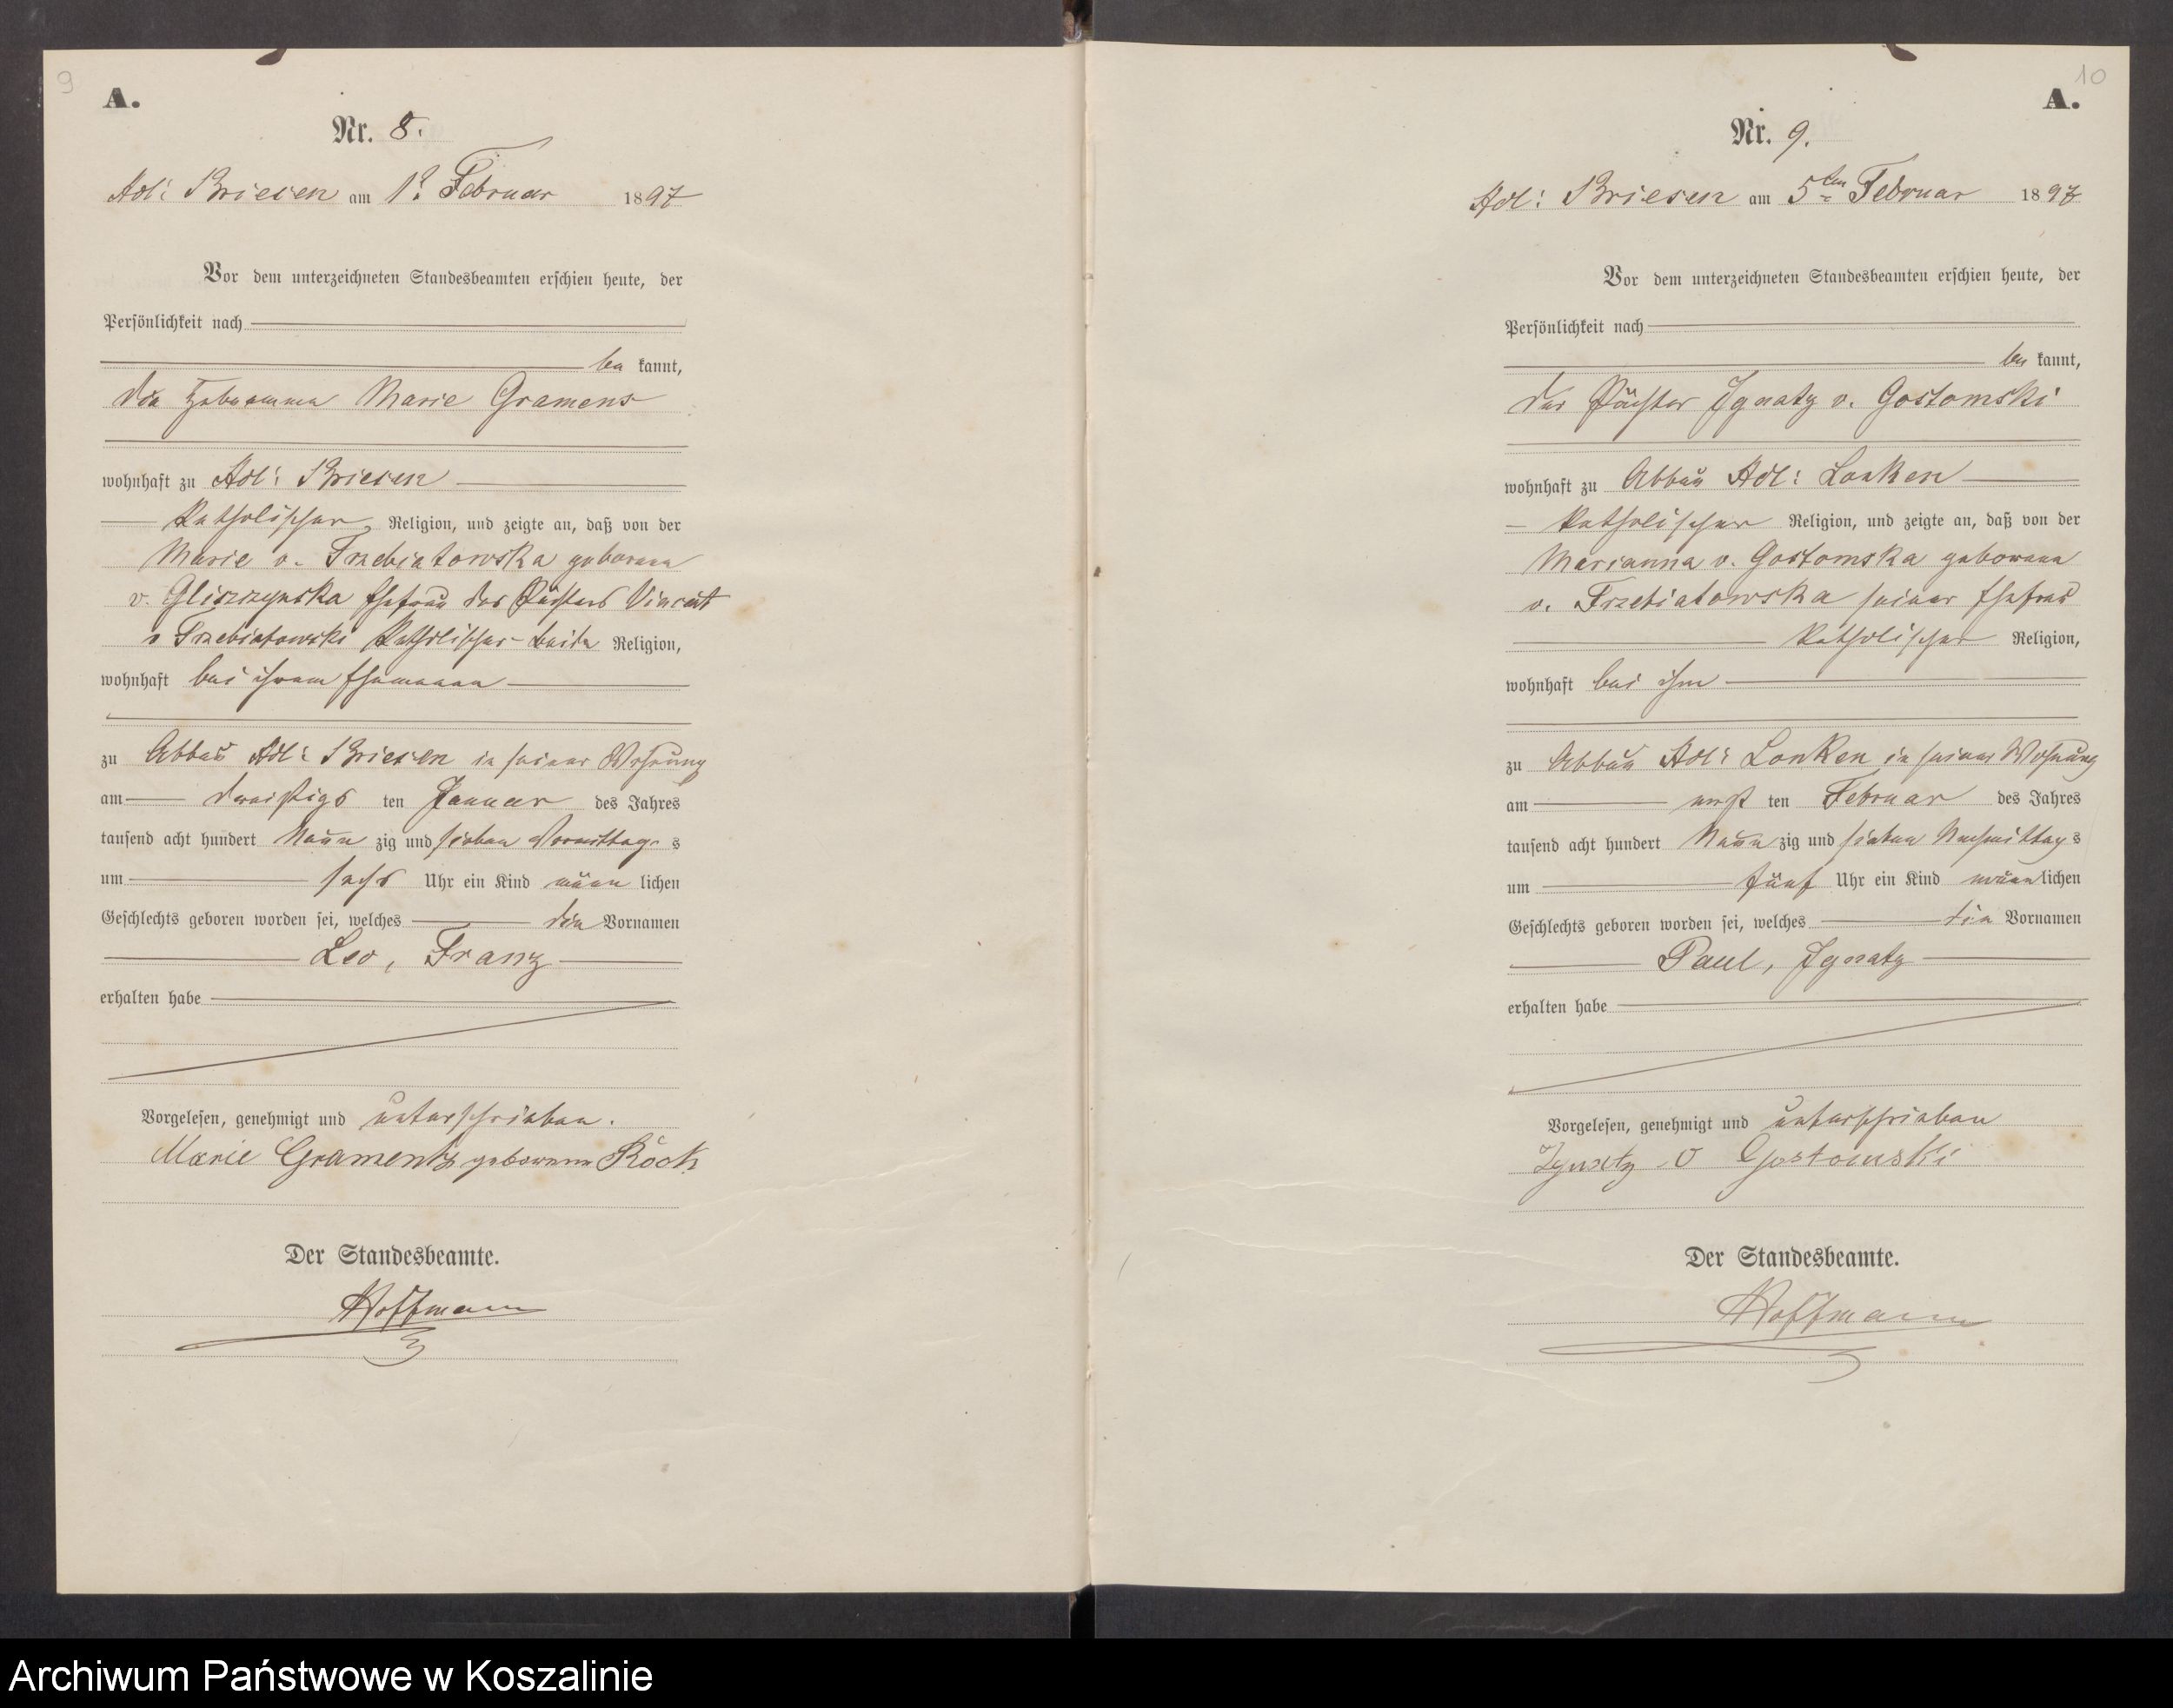 9
A.
Nr. 8.
Adl: Briesen am 1. Februar 1897
Vor dem unterzeichneten Standesbeamten erschien heute, der
Persönlichkeit nach
be kannt,
die Hebamme Marie Gramens
wohnhaft zu Adl: Briesen
katholischer Religion, und zeigte an, daß von der
Marie v. Trzebiatowska geborene
v. Gliszczynska Ehefrau des Pächters Vincent
v Trzebiatowski katholischer beide Religion,
wohnhaft bei ihrem Ehemann
zu Abbau Adl: Briesen in seiner Wohnung
am dreißigs ten Januar des Jahres
tausend acht hundert Neun zig und sieben Vormittag s
um sechs Uhr ein Kind männ lichen
Geschlechts geboren worden sei, welches die Vornamen
Leo, Franz
erhalten habe
Vorgelesen, genehmigt und unterschrieben.
Marie Gramentz geborenne Röck
Der Standesbeamte.
Hoffmann
10
A.
Nr. 9.
Adl: Briesen am 5ten Februar 1897
Vor dem unterzeichneten Standesbeamten erschien heute, der
Persönlichkeit nach
be kannt,
der Pächter Ignatz v. Gostomski
wohnhaft zu Abbau Adl: Lonken
katholischer Religion, und zeigte an, daß von der
Marianna v. Gostomska geborene
v. Trzebiatowska seiner Ehefrau
katholischer Religion,
wohnhaft bei ihm
zu Abbau Adl: Lonken in seiner Wohnung
am erst ten Februar des Jahres
tausend acht hundert Neun zig und sieben Nachmittag s
um fünf Uhr ein Kind männ lichen
Geschlechts geboren worden sei, welches die Vornamen
Paul, Ignatz
erhalten habe
Vorgelesen, genehmigt und unterschrieben
Ignatz v Gostomski
Der Standesbeamte.
Hoffmann
Archiwum Państwowe w Koszalinie